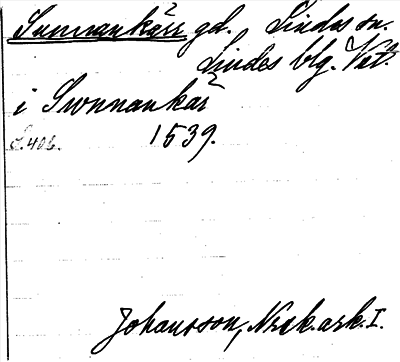 Sunnankärr gd., Lindes sn.
Lindes blg. Väst.
i Swnnankär
S. 406. 1539.
Johansson, Nork. ark. I.